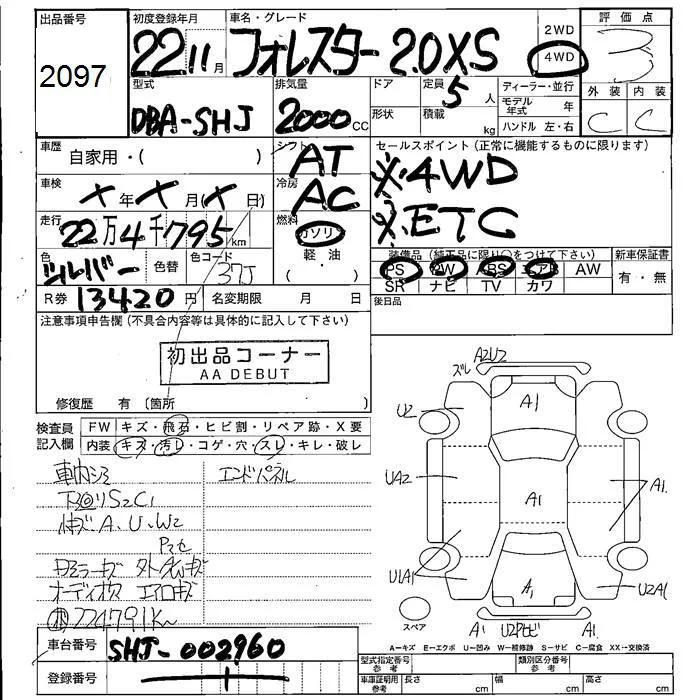 出品番号
2097
初度登録年月
22 11月
車名・グレード
フォレスター 2.0XS
2WD
4WD
評価点
3
外装 内装
C C
型式
DBA-SHJ
排気量
2000cc
ドア
形状
定員
5人
積載
kg
ディーラー・並行
モデル年式 年
ハンドル 左・右
車歴
自家用・( )
シフト
AT
セールスポイント(正常に機能するものに限ります)
※4WD
※ETC
車検
X年X月(X日)
冷房
AC
走行
22万4千795km
燃料
ガソリン
・
(軽・油)
色
シルバー
色替
色コード
37J
装備品(純正品に限り○をつけて下さい)
PS PW ABS エアB AW
SR ナビ TV カワ
新車保証書
有・無
R券 13420円
名変期限 月 日
後日品
注意事項申告欄(不具合内容等は具体的に記入して下さい)
初出品コーナー
AA DEBUT
修復歴 有 〔箇所 〕
検査員
記入欄
FW キズ・飛石・ヒビ割・リペア跡・X要
内装 キズ・汚レ・コゲ・穴・スレ・キレ・破レ
車内シミ
エンドパネル
下回りS2C1
A、U、W2
オーディオ
224791Km
ズレ A2U2
U2
A1
UA2
A1
A1.
U1A1
A1
U2A1
スペア
A1
A1.
A=キズ E=エクボ U=凹み W=補修跡 S=サビ C=腐食 XX=交換済
車台番号
SHJ-002960
登録番号
型式指定番号
参考
類別区分番号
参考
車庫証明用
参考
長さ cm
幅 cm
高さ cm